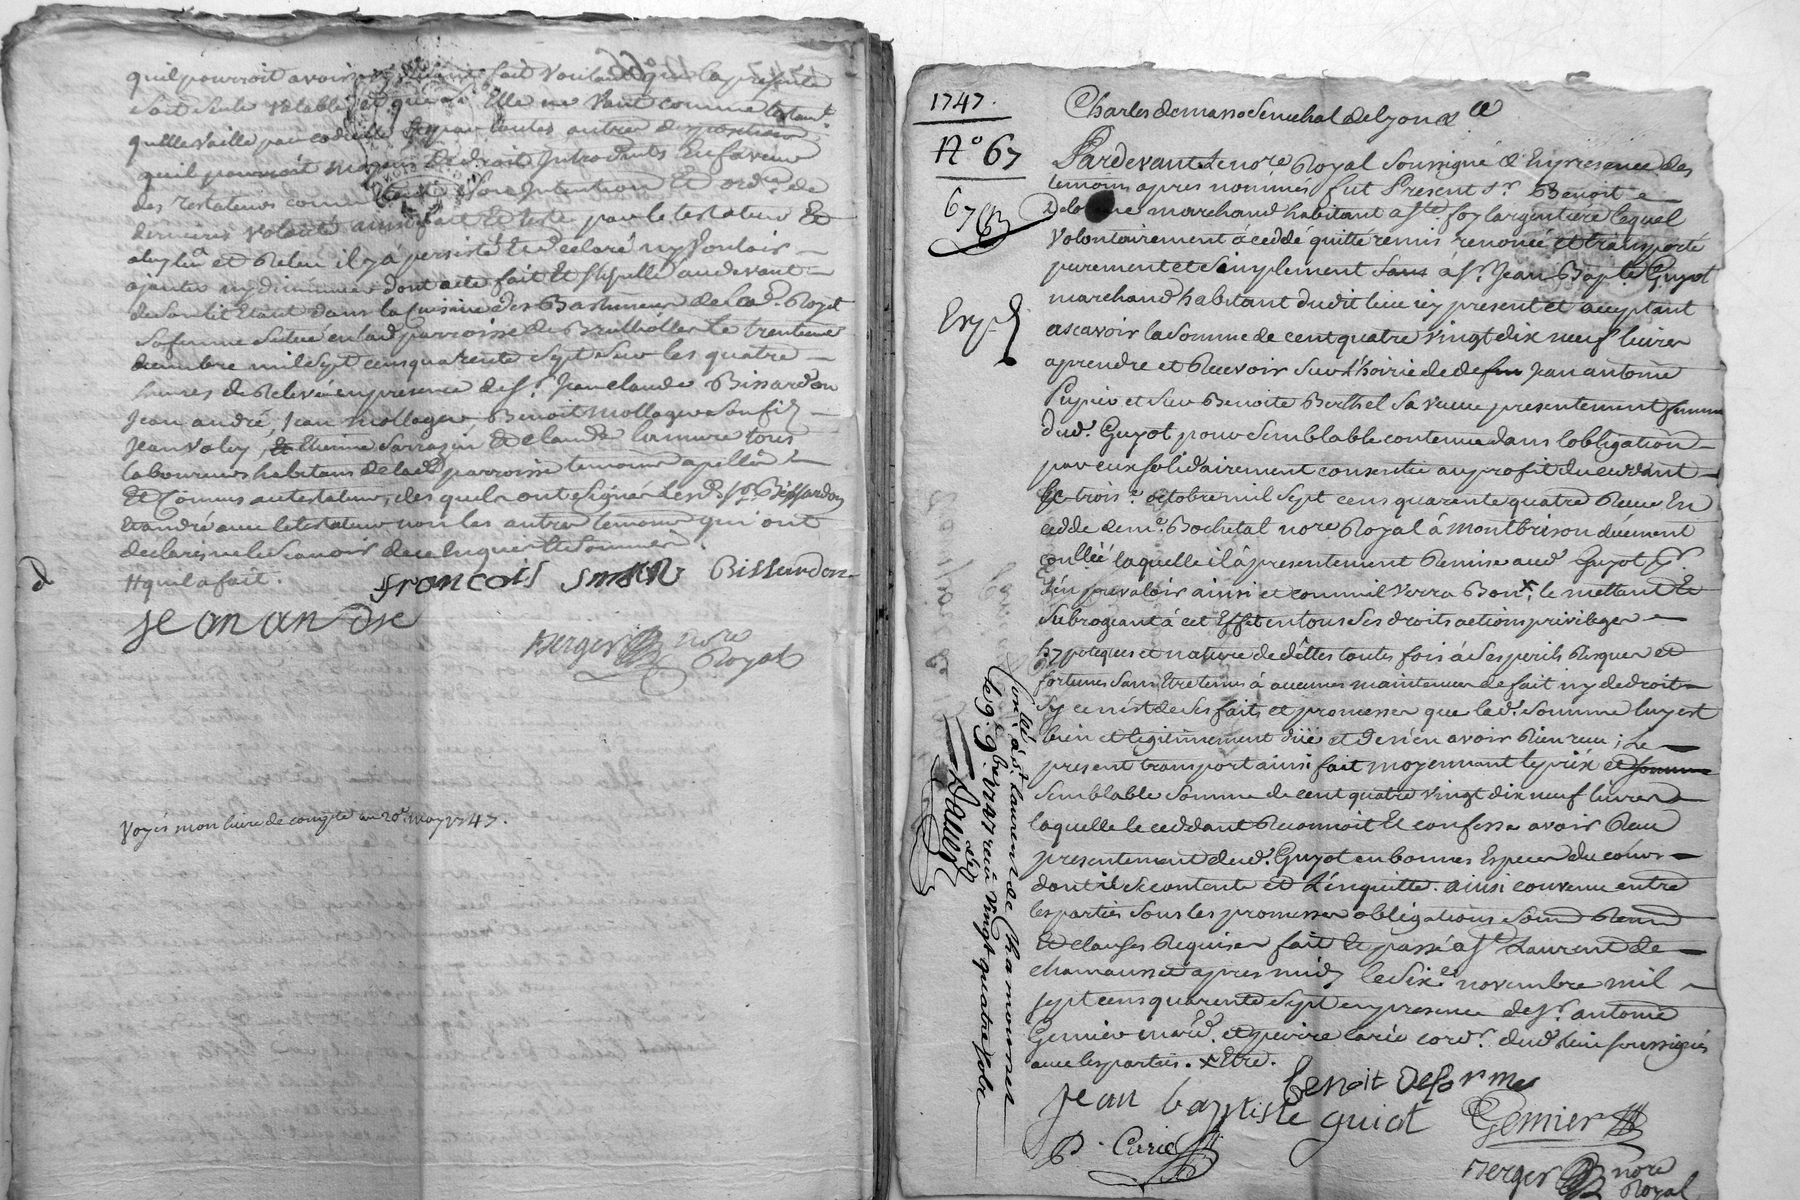 quil pourroit avoir fait voulant que la presente
soit seule valable et que si elle ne vaut comme testamt
quelle vaille par codicille et par toutes autres dispositions
quil pourroit de droit introduits en faveur
des testateurs son intention et ordce de
derniere volonté ainsi fait et testé par le testateur et
a luy leu et releu il y a persisté et declaré ny vouloir
ajouter ny diminuer dont acte fait et stipullé audevant
du Royet
sa ferme située en lad. parroisse de Brullioles le trentieme
mil sept cens quarente sept sur les quatre
heures de relevé en presence de sr. Jean claude Bissardon
Jean andré, Jean Mollager, Benoit Mollager son fils
Jean Valoy, Etienne Sarrazin et claude tous
laboureurs habitans de lad. parroisse temoins apellés
et connus au testateur, des quels ont signé lesd. sr. Bissardon
et andré avec le testateur non les autres temoins qui ont
declaré ne le scavoir de ce enquis et sommés
# quil a fait.
francois Bissardon
jean andre
Berger nore
Royal
Voyés mon livre de compte du 20e. may 1747.
1747.
N° 67
67
Exp
Charles de masso Senechal de Lyon &a
Pardevant Le nore Royal soussigné & En presence des
temoins apres nommés fut Present sr. Benoit
marchand habitant a ste. foy largentiere lequel
volontairement à ceddé quitté remis renoncé et transporté
purement et simplement sans à sr. Jean Bapte. Guyot
marchand habitant dudit lieu icy present et acceptant
ascavoir la somme de cent quatre vingt dix neuf livres
a prendre et recevoir sur L'hoirie de defun Jean antoine
Pupier et sur Benoite Berthel sa veuve presentement femme
dud. Guyot pour semblable contenue dans lobligation
par eux solidairement consentie au profit du ceddant
Le trois e. octobre mil sept cens quarente quatre Receue En
cedde de me. Bochetal nore Royal à Montbrison düement
conllée laquelle il à presentement Remise aud. Guyot pr.
s'en prevaloir ainsi et comm'il verra Bon x, le mettant et
subrogeant à cet Effet en tous ses droits actions privileges
hypoteques et nature de dettes toutes fois à ses perils risques et
fortunes sans Etre tenu à aucunes maintenues de fait ny de droit
sy ce n'est de ses faits et promesses que lad. somme luy est
bien et legitimement düe et de n'en avoir Rien receu ; Le
present transport ainsi fait moyennant le prix et somme
semblable somme de cent quatre vingt dix neuf livres
laquelle le ceddant Reconnoit et confesse avoir Receu
presentement dud. Guyot en bonnes Especes du cours
dont il se contente et l'en quitte. ainsi convenu entre
les parties sous les promesses obligations
et clauses Requises fait et passé a st. Laurent de
chamousset apres midy le six e. novembre mil
sept cens quarente sept en presence de sr. antoine
Gemier march. et pierre carie cordr. dud. lieu soussignés
avec les parties. x Etre.
Benoit
jean baptiste guiot Gemier
P. Carie
Berger nore
Royal
conllé à st. laurent de chamousset
le 9e. 9bre 1747 receu vingt quatre sols